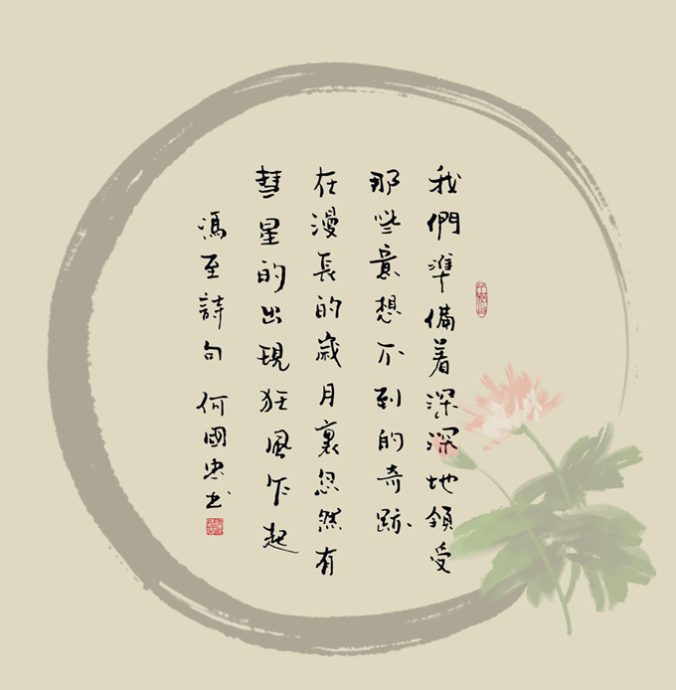 我們準備着深深地領受
那些意想不到的奇跡
在漫長的歲月裏忽然有
彗星的出現狂風乍起
馮至詩句 何國忠书